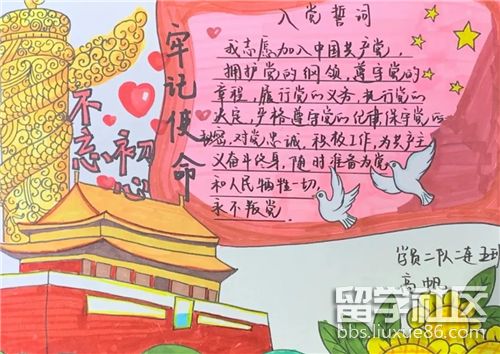 入党誓词
我志愿加入中国共产党，
拥护党的纲领，遵守党的
章程，履行党的义务，执行党的
决定，严格遵守党的纪律，保守党的
秘密，对党忠诚，积极工作，为共产主
义奋斗终身，随时准备为党
和人民牺牲一切，
永不叛党。
不忘初心
牢记使命
学员二队二连五班
高帆
留学社区
bbs.liuxue86.com